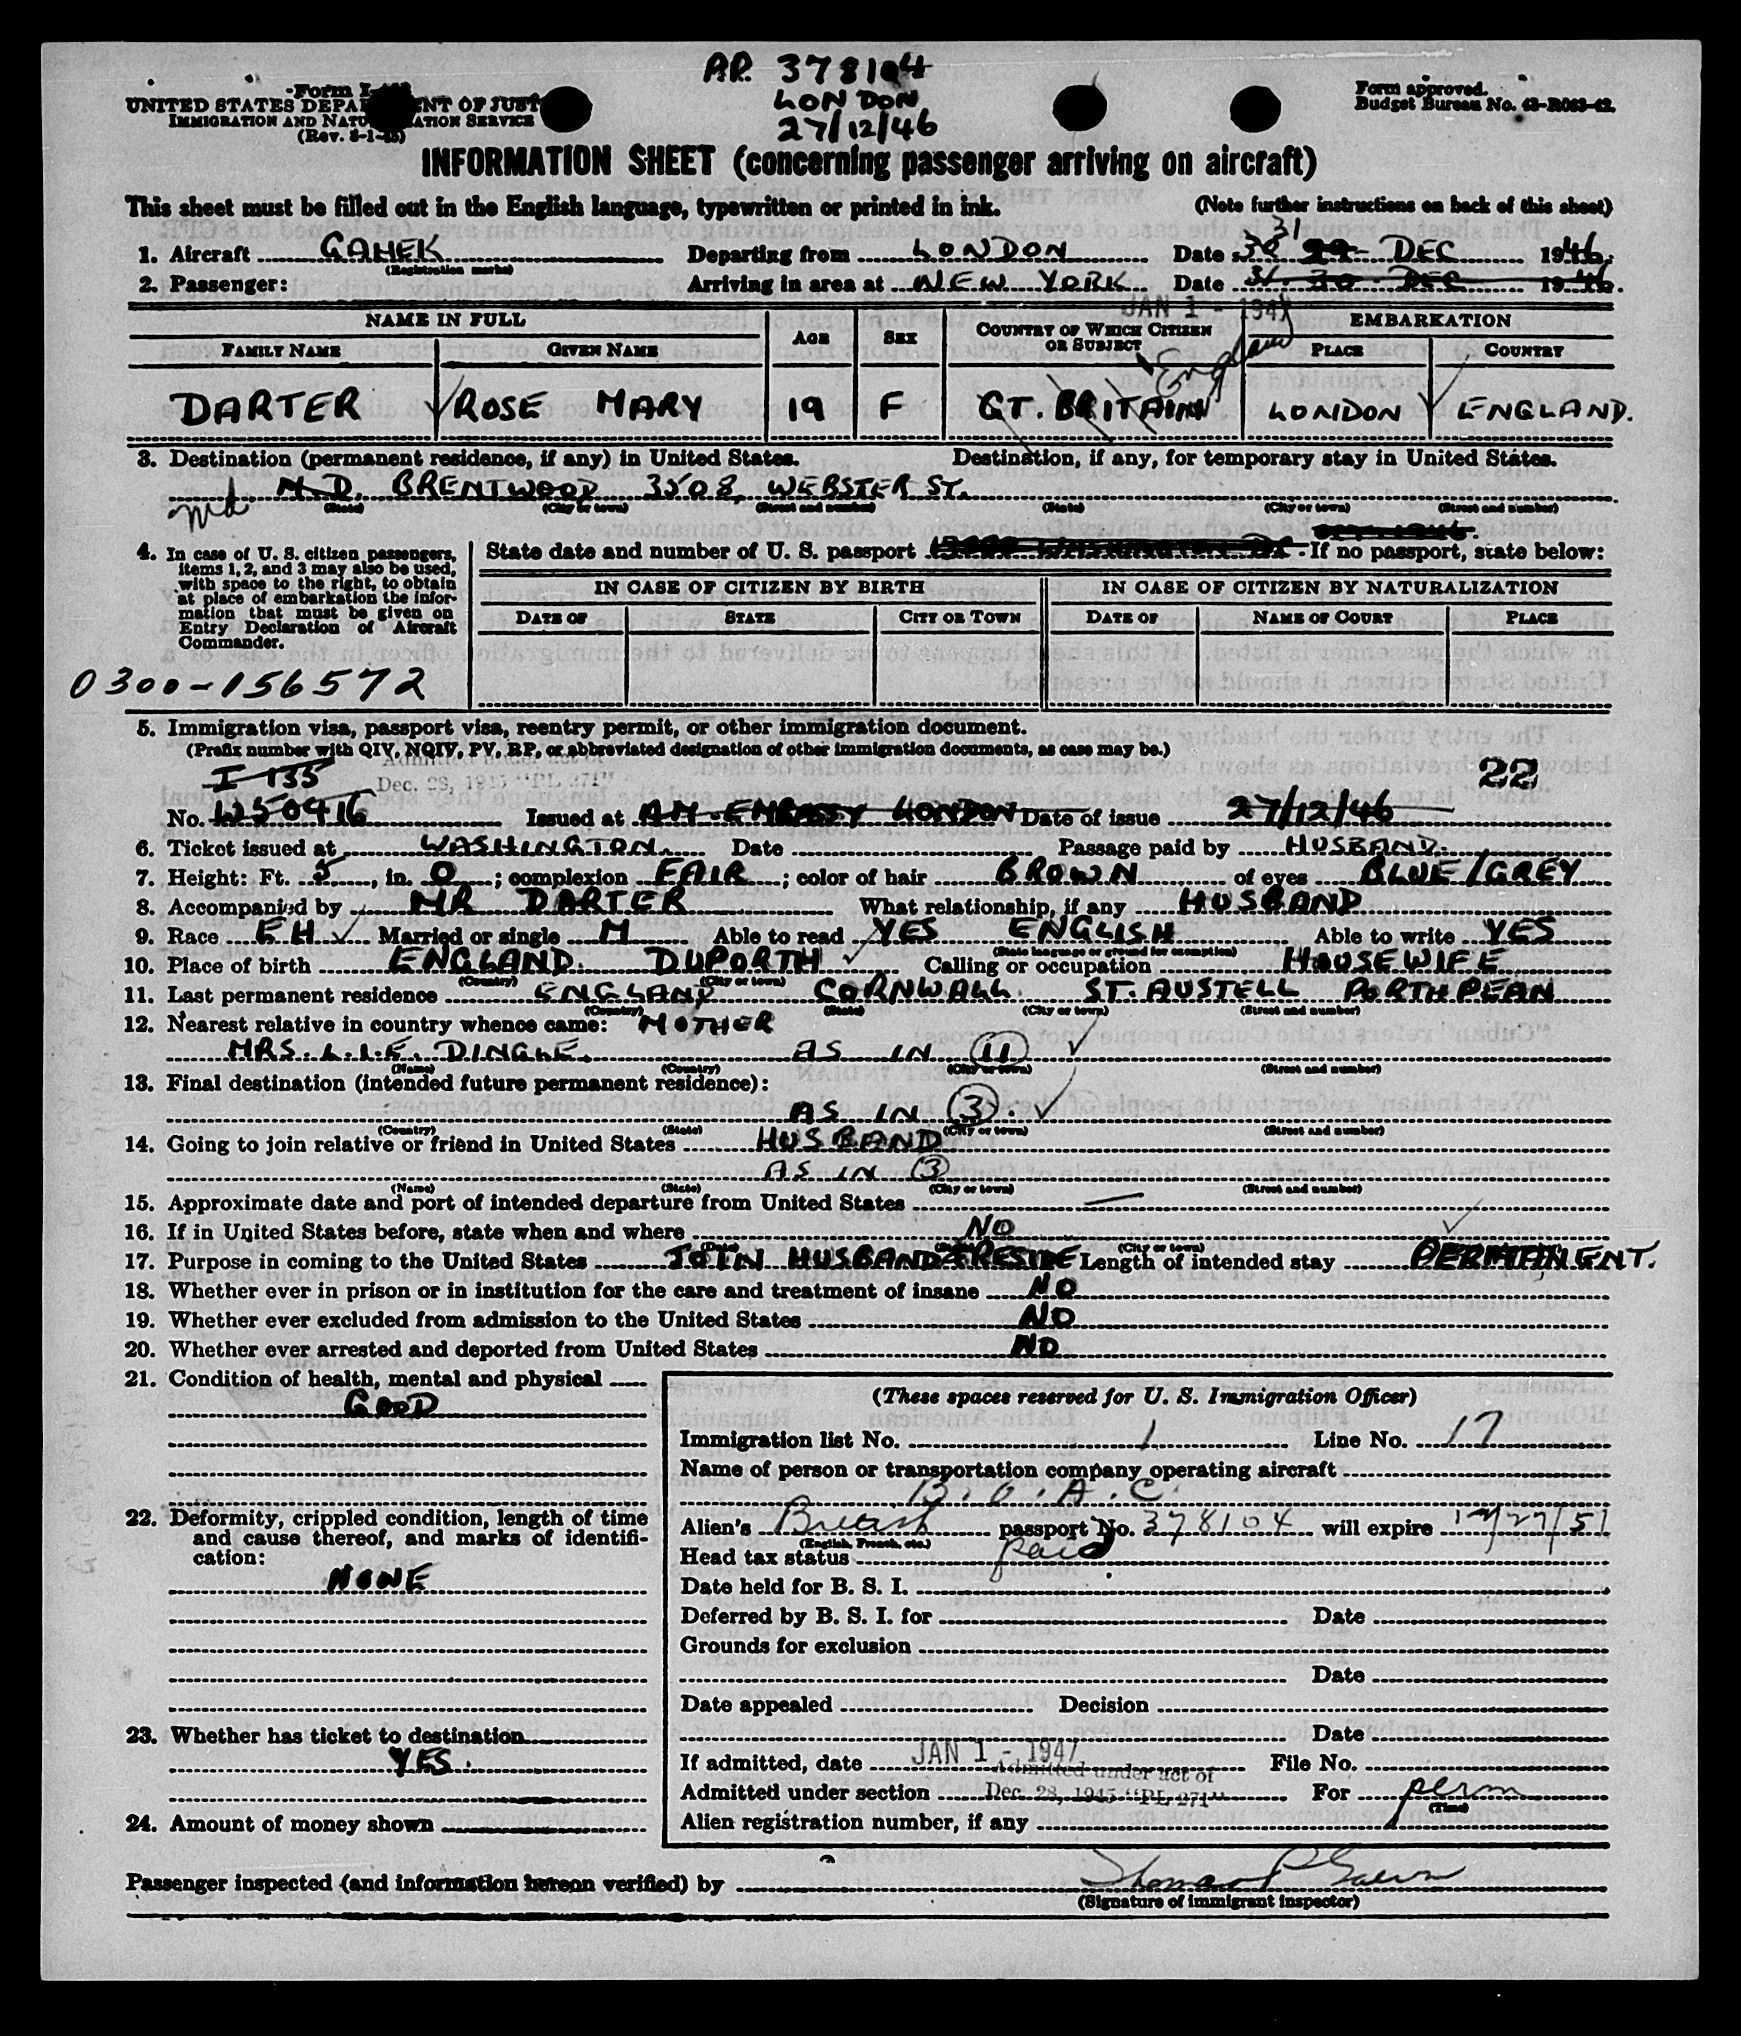 A.P. 378104
LONDON,
27/12/46
Form
UNITED STATES DEPARTMENT OF JUSTICE
IMMIGRATION AND NATURALIZATION SERVICE
(Rev. 8-1-45)
Form approved.
Budget Bureau No. 43-R063-42.
INFORMATION SHEET (concerning passenger arriving on aircraft)
This sheet must be filled out in the English language, typewritten or printed in ink. (Note further instructions on back of this sheet)
31
1. Aircraft GAHEK Departing from LONDON Date 30 29 DEC 1946.
(Registration marks)
2. Passenger: Arriving in area at NEW YORK Date 31. 30 DEC 1946.
JAN 1 - 1947
NAME IN FULL AGE SEX COUNTRY OF WHICH CITIZEN OR SUBJECT EMBARKATION
FAMILY NAME GIVEN NAME PLACE COUNTRY
England
DARTER ROSE MARY 19 F GT. BRITAIN LONDON ENGLAND.
3. Destination (permanent residence, if any) in United States. Destination, if any, for temporary stay in United States.
M.D. BRENTWOOD 3508, WEBSTER ST.
Md
(State) (City or town) (Street and number) (State) (City or town) (Street and number)
4. In case of U. S. citizen passengers, items 1, 2, and 3 may also be used, with space to the right, to obtain at place of embarkation the information that must be given on Entry Declaration of Aircraft Commander.
State date and number of U. S. passport If no passport, state below:
IN CASE OF CITIZEN BY BIRTH IN CASE OF CITIZEN BY NATURALIZATION
DATE OF STATE CITY OR TOWN DATE OF NAME OF COURT PLACE
0300-156572
5. Immigration visa, passport visa, reentry permit, or other immigration document.
(Prefix number with QIV, NQIV, PV, RP, or abbreviated designation of other immigration documents, as case may be.)
I 135 Admitted under act of
Dec. 28, 1945 "PL 271" 22
No. 1250416 Issued at AM. EMBASSY LONDON Date of issue 27/12/46
6. Ticket issued at WASHINGTON. Date Passage paid by HUSBAND.
7. Height: Ft. 5, in. 0; complexion FAIR; color of hair BROWN of eyes BLUE/GREY
8. Accompanied by MR DARTER What relationship, if any HUSBAND
9. Race EH Married or single M Able to read YES ENGLISH Able to write YES
(State language or ground for exemption)
10. Place of birth ENGLAND. DUPORTH Calling or occupation HOUSEWIFE
(Country) (City or town)
11. Last permanent residence ENGLAND CORNWALL ST. AUSTELL PORTHPEAN
(Country) (State) (City or town) (Street and number)
12. Nearest relative in country whence came: MOTHER
MRS. L.I.E. DINGLE. AS IN 11
(Name) (Country) (City or town) (Street and number)
13. Final destination (intended future permanent residence):
AS IN 3.
(Country) (State) (City or town) (Street and number)
14. Going to join relative or friend in United States HUSBAND
AS IN 3
(Name) (State) (City or town) (Street and number)
15. Approximate date and port of intended departure from United States —
16. If in United States before, state when and where NO
(Date) (City or town)
17. Purpose in coming to the United States JOIN HUSBAND & RESIDE Length of intended stay PERMANENT.
18. Whether ever in prison or in institution for the care and treatment of insane NO
19. Whether ever excluded from admission to the United States NO
20. Whether ever arrested and deported from United States NO
21. Condition of health, mental and physical
GOOD
22. Deformity, crippled condition, length of time and cause thereof, and marks of identification:
NONE
23. Whether has ticket to destination
YES.
24. Amount of money shown
(These spaces reserved for U. S. Immigration Officer)
Immigration list No. 1 Line No. 17
Name of person or transportation company operating aircraft
B.O.A.C.
Alien's British passport No. 378104 will expire 12/27/51
(English, French, etc.)
Head tax status paid
Date held for B. S. I.
Deferred by B. S. I. for Date
Grounds for exclusion
Date
Date appealed Decision
Date
If admitted, date JAN 1 - 1947 File No.
Admitted under act of
Admitted under section Dec. 28, 1945 "PL 271" For perm
(Time)
Alien registration number, if any
Passenger inspected (and information hereon verified) by Thomas P
(Signature of immigrant inspector)